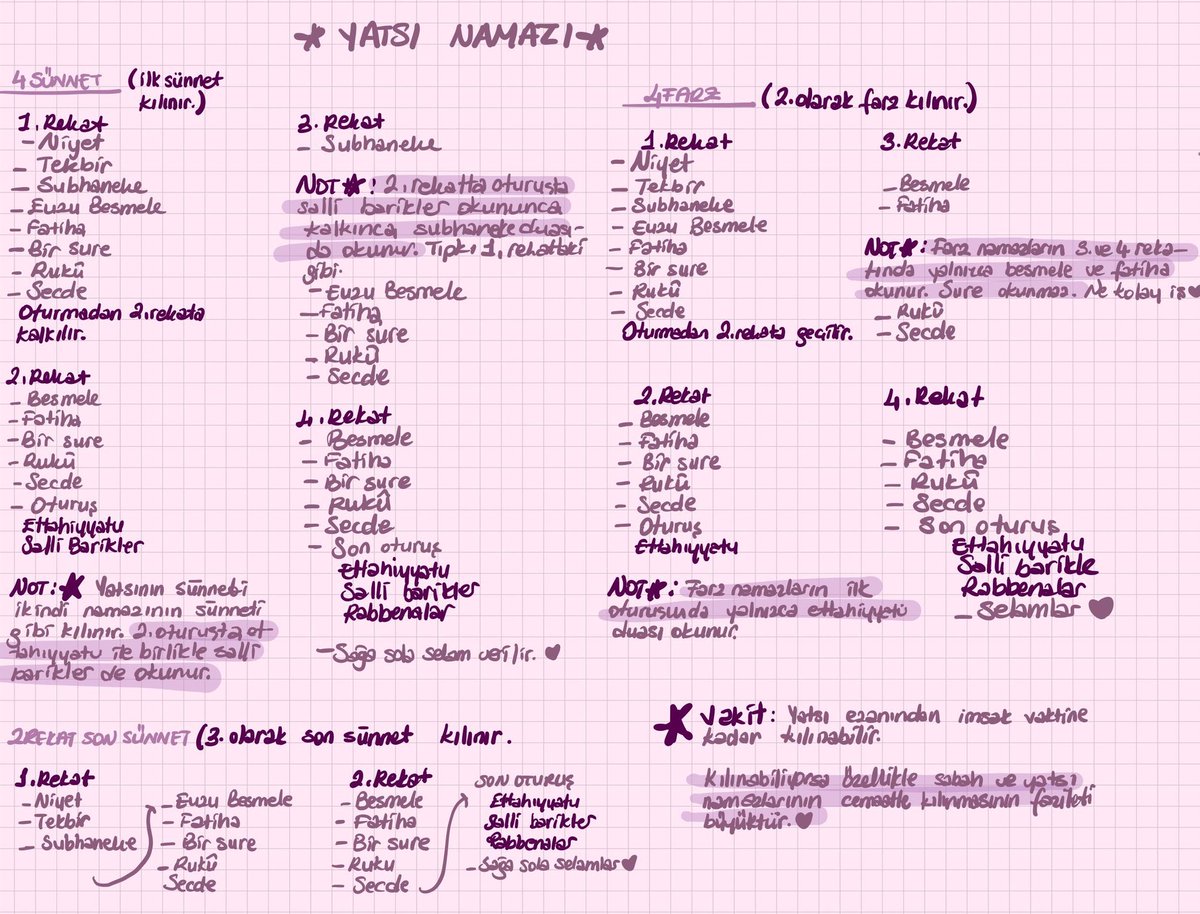 * YATSI NAMAZI *
4 SÜNNET (ilk sünnet
kılınır.)
1. Rekat
- Niyet
- Tekbir
- Subhaneke
- Euzu Besmele
- Fatiha
- Bir sure
- Rukû
- Secde
Oturmadan 2. rekata
kalkılır.
2. Rekat
- Besmele
- Fatiha
- Bir sure
- Rukû
- Secde
- Oturuş
Ettahiyyatu
Salli Barikler
NOT: * Yatsının sünneti
ikindi namazının sünneti
gibi kılınır. 2. oturuşta et-
tahiyyatu ile birlikte salli
barikler de okunur.
3. Rekat
- Subhaneke
NOT *: 2. rekatta oturuşta
salli barikler okununca
kalkınca, subhaneke duası-
da okunur. Tıpkı 1. rekattaki
gibi.
- Euzu Besmele
- Fatiha
- Bir sure
- Rukû
- Secde
4. Rekat
- Besmele
- Fatiha
- Bir sure
- Rukû
- Secde
- Son oturuş
Ettahiyyatu
Salli barikler
Rabbenalar
- Sağa sola selam verilir. ♥
4 FARZ (2. olarak farz kılınır.)
1. Rekat
- Niyet
- Tekbir
- Subhaneke
- Euzu Besmele
- Fatiha
- Bir sure
- Rukû
- Secde
Oturmadan 2. rekata geçilir.
2. Rekat
- Besmele
- Fatiha
- Bir sure
- Rukû
- Secde
- Oturuş
Ettahiyyatu
NOT *: Farz namazların ilk
oturuşunda yalnızca ettahiyyetü
duası okunur.
3. Rekat
- Besmele
- Fatiha
NOT *: Farz namazların 3. ve 4 reka-
tında yalnızca besmele ve fatiha
okunur. Sure okunmaz. Ne kolay iş ♥
- Rukû
- Secde
4. Rekat
- Besmele
- Fatiha
- Rukû
- Secde
- Son oturuş
Ettahıyyatu
Salli barikle
Rabbenalar
- Selamlar ♥
2 REKAT SON SÜNNET (3. olarak son sünnet kılınır.
1. Rekat
- Niyet
- Tekbir
- Subhaneke
- Euzu Besmele
- Fatiha
- Bir sure
- Rukû
Secde
2. Rekat
- Besmele
- Fatiha
- Bir sure
- Ruku
- Secde
SON OTURUŞ
Ettahıyyatu
Salli barikler
Rabbenalar
- Sağa sola selamlar ♥
* Vakit: Yatsı ezanından imsak vaktine
kadar kılınabilir.
Kılınabiliyorsa özellikle sabah ve yatsı
namazlarının cemaatle kılınmasının fazileti
büyüktür. ♥